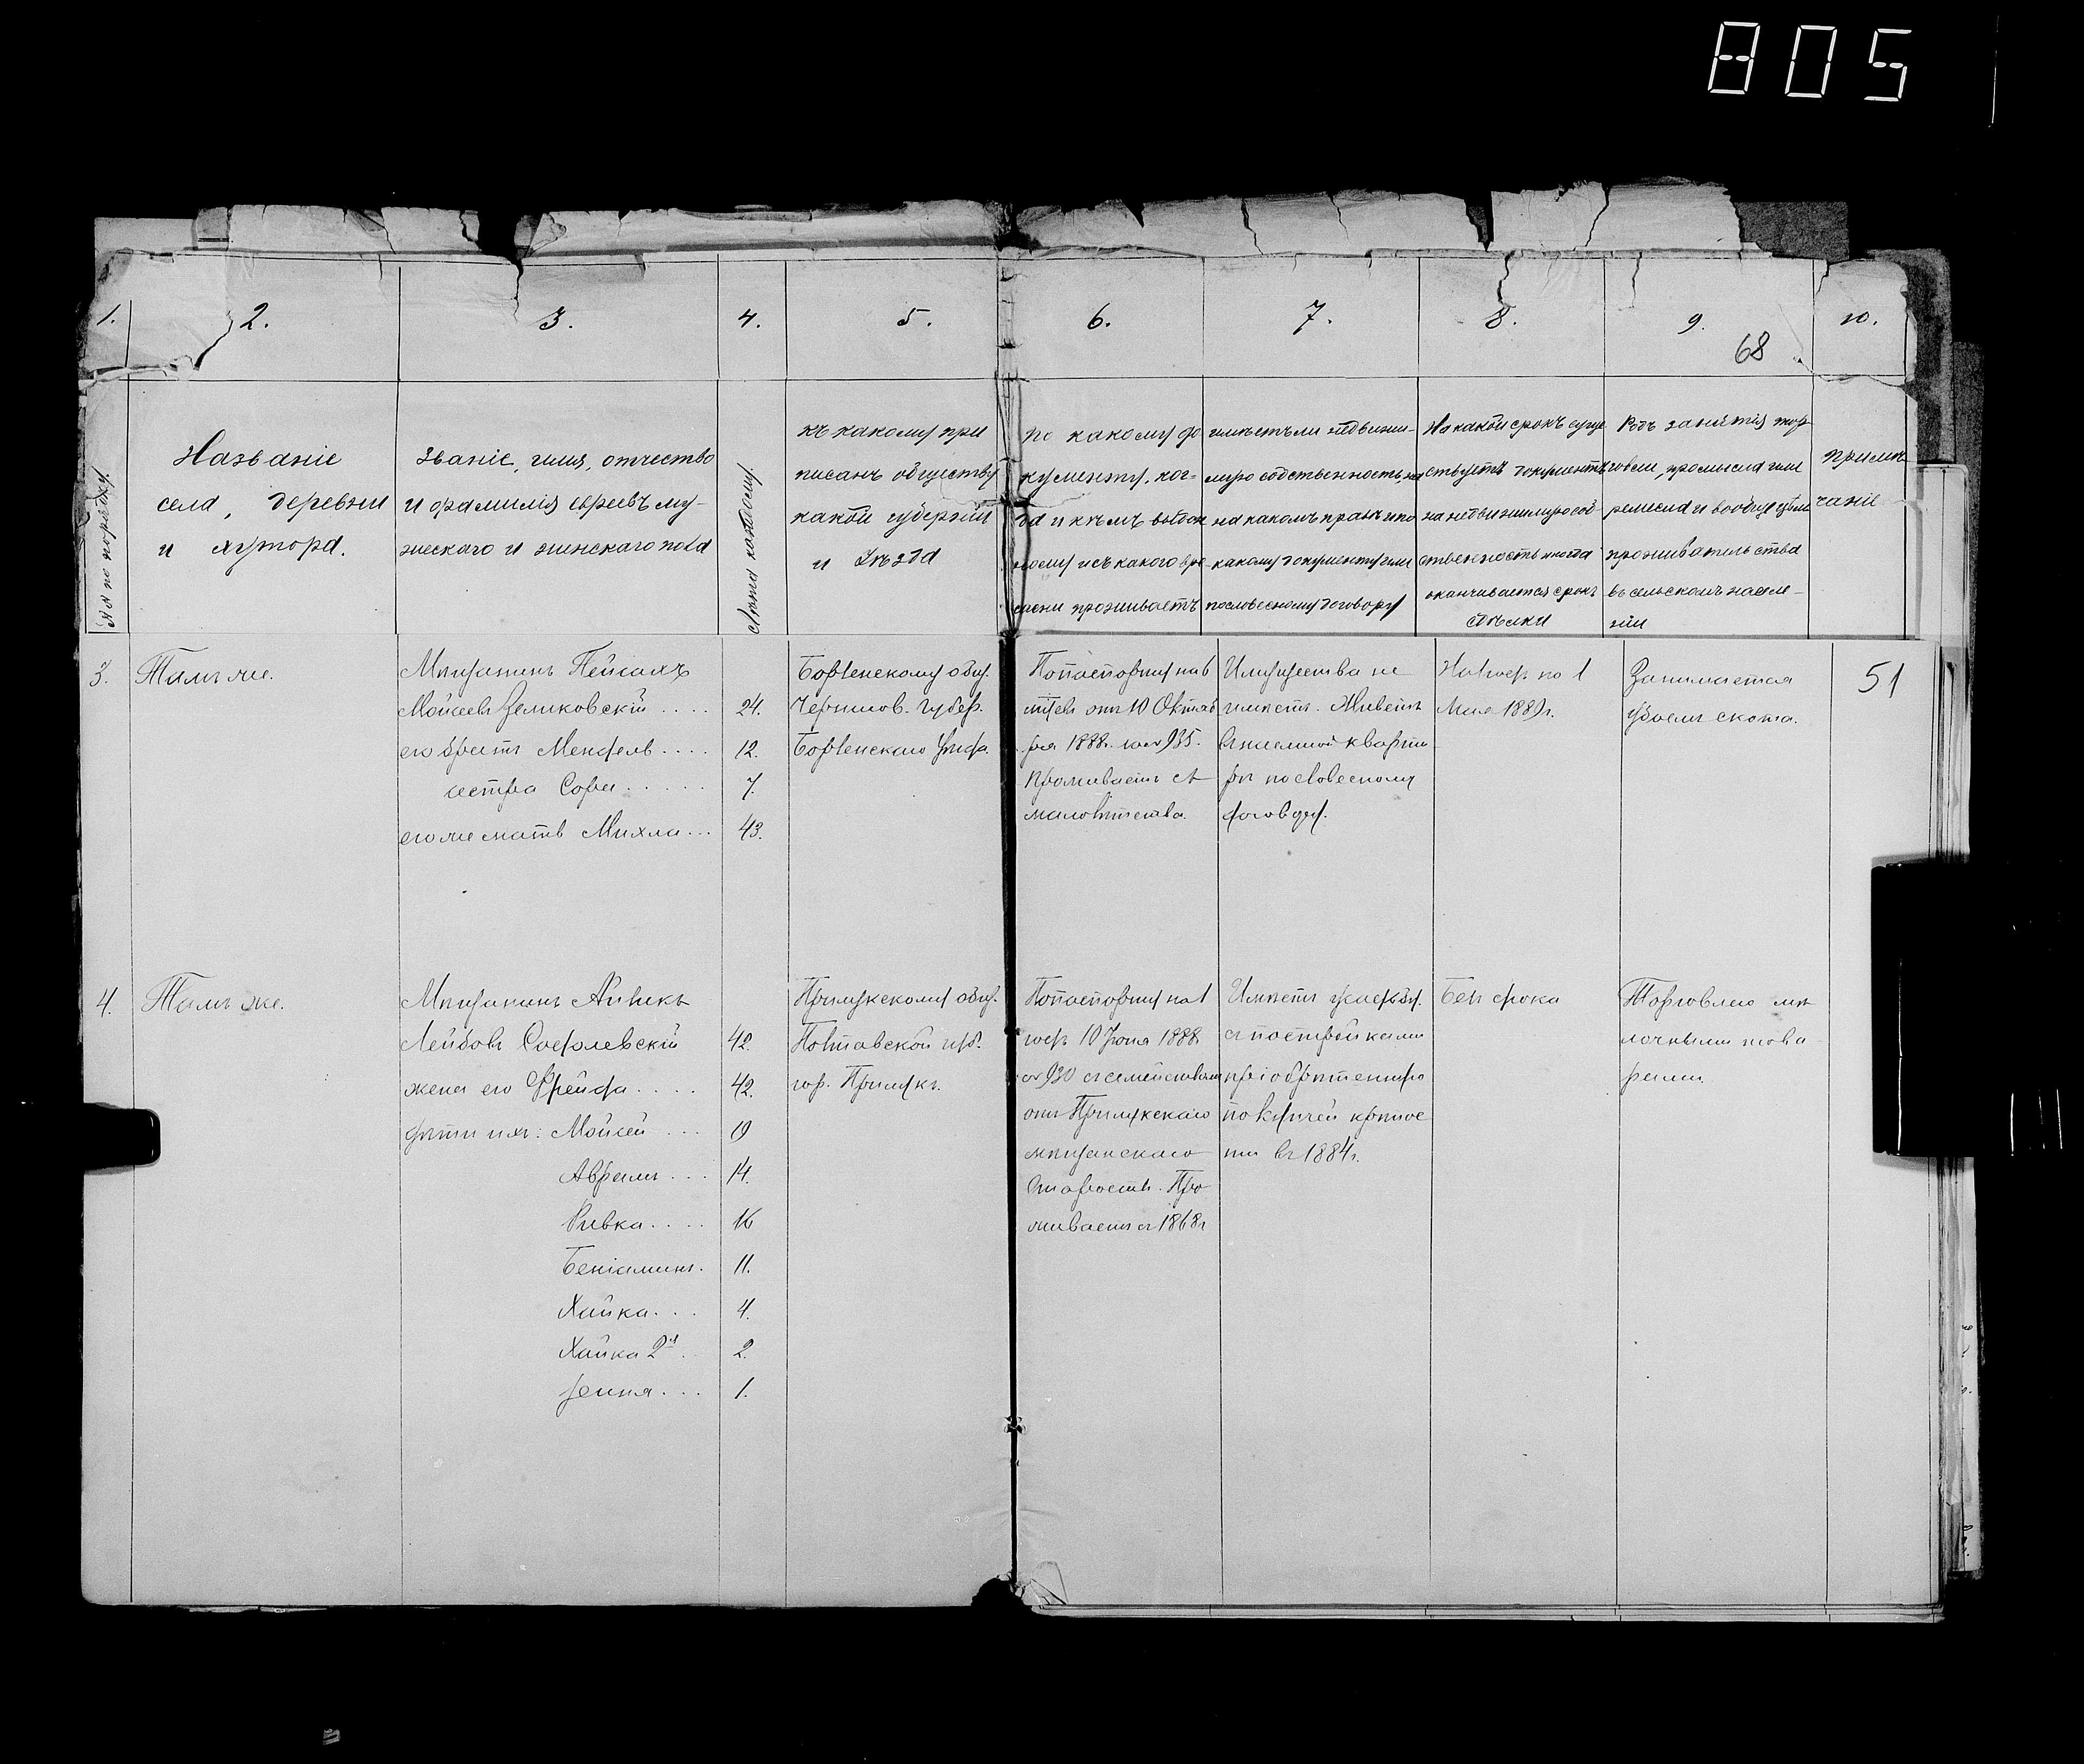 805
1.
2.
3.
4.
5.
6.
7.
8.
9.
10.
68
№№ по порядку.
Названіе
села, деревни
и хутора.
Званіе, имя, отчество
и фамилія евреевъ му-
жескаго и женскаго пола
Лѣта каждому.
къ какому при
писанъ обществу
какой губерніи
и уѣзда
по какому до
кументу, ког-
да и кѣмъ выдан
ному и съ какого вре-
мени проживаетъ
имѣетъ ли недвижи-
мую собственность, на
на какомъ правѣ и по
какому документу или
по словесному договору
На какой срокъ суще
ствуетъ документъ
на недвижимую соб-
ственность и когда
оканчивается срокъ
сдѣлки
Родъ занятія тор
говли, промысла или
ремесла и вообще цѣли
проживательства
въ сельскомъ населе-
ніи
Примѣ
чаніе
3.
Тамъ же.
Мѣщанинъ Пейсахъ
Мойсеевъ Зеликовскій .... 24.
его братъ Мендель .... 12.
сестра Сора ..... 7.
его же мать Михля ... 43.
Борзенскому общ.
Чернигов. губер.
Борзенскаго уѣзда.
По паспорту на 6
мѣсяц. отъ 10 Октяб
ря 1888 г. за № 935.
Проживаетъ съ
малолѣтства.
Имущества не
имѣетъ. Живетъ
въ наемной кварти
рѣ по словесному
договору.
На 1 годъ по 1
Мая 1889 г.
Занимается
убоемъ скота.
51
4.
Тамъ же.
Мѣщанинъ Айзикъ
Лейбовъ Содолевскій 42.
жена его Фрейда .... 42.
дѣти ихъ: Мойсей ... 19
Аврамъ ... 14.
Ривка .... 16
Беніаминъ. 11.
Хайка ... 4.
Хайка 2я . 2.
Геня ... 1.
Прилукскому общ.
Полтавской губ.
гор. Прилукъ.
По паспорту на 1
годъ 10 Іюня 1888
за № 930 съ семействомъ
отъ Прилукскаго
мѣщанскаго
Старосты. Про
живаетъ съ 1868 г
Имѣетъ усадьбу.
съ постройками
пріобрѣтенную
по купчей крѣпос
ти въ 1884 г.
Безъ срока
Торговлею мѣ
лочными това
рами.